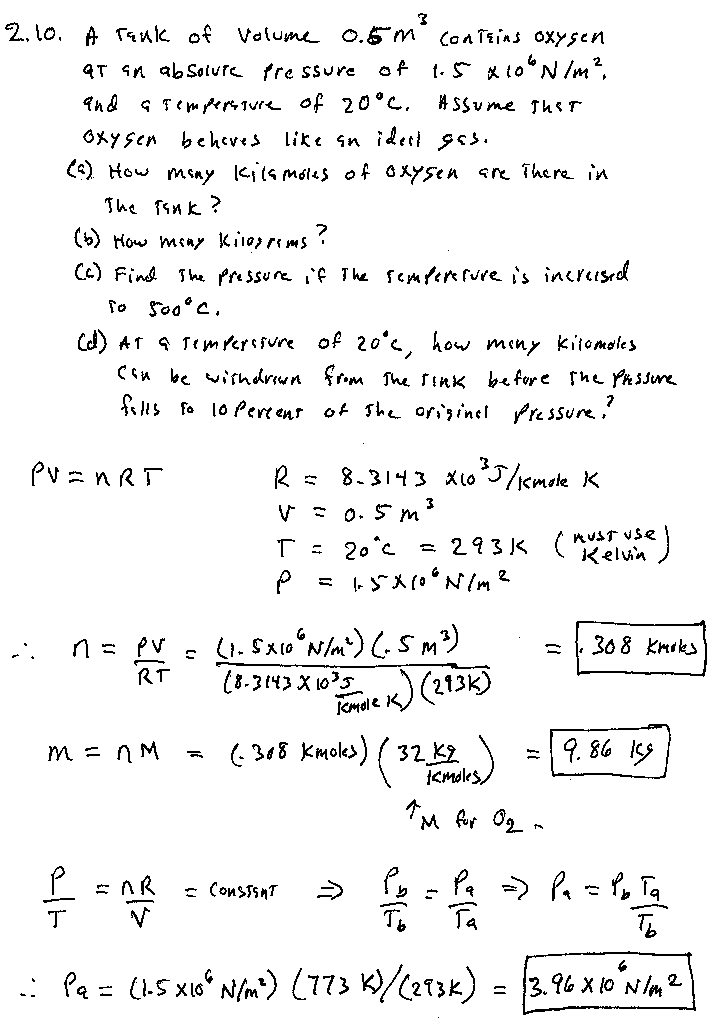 2.10. A Tank of Volume 0.5 m³ contains oxygen
at an absolute pressure of 1.5 x10⁶ N/m²,
and a temperature of 20°C. Assume that
oxygen behaves like an ideal gas.
(a) How many kilamoles of oxygen are there in
the tank?
(b) How many kilograms?
(c) Find the pressure if the temperature is increased
to 500°C.
(d) At a temperature of 20°C, how many kilomoles
can be withdrawn from the tank before the pressure
falls to 10 percent of the original pressure?
PV = nRT R = 8.3143 x10³ J/Kmole K
V = 0.5 m³
T = 20°C = 293K (must use Kelvin)
P = 1.5 x10⁶ N/m²
∴ n = PV/RT = (1.5x10⁶ N/m²)(.5 m³) / (8.3143 x10³ J/Kmole K)(293K) = .308 Kmoles
m = nM = (.308 Kmoles)(32 Kg/Kmoles) = 9.86 Kg
↑M for O₂.
P/T = nR/V = constant ⇒ Pb/Tb = Pa/Ta ⇒ Pa = Pb Ta/Tb
∴ Pa = (1.5 x10⁶ N/m²) (773 K)/(293K) = 3.96 x 10⁶ N/m²